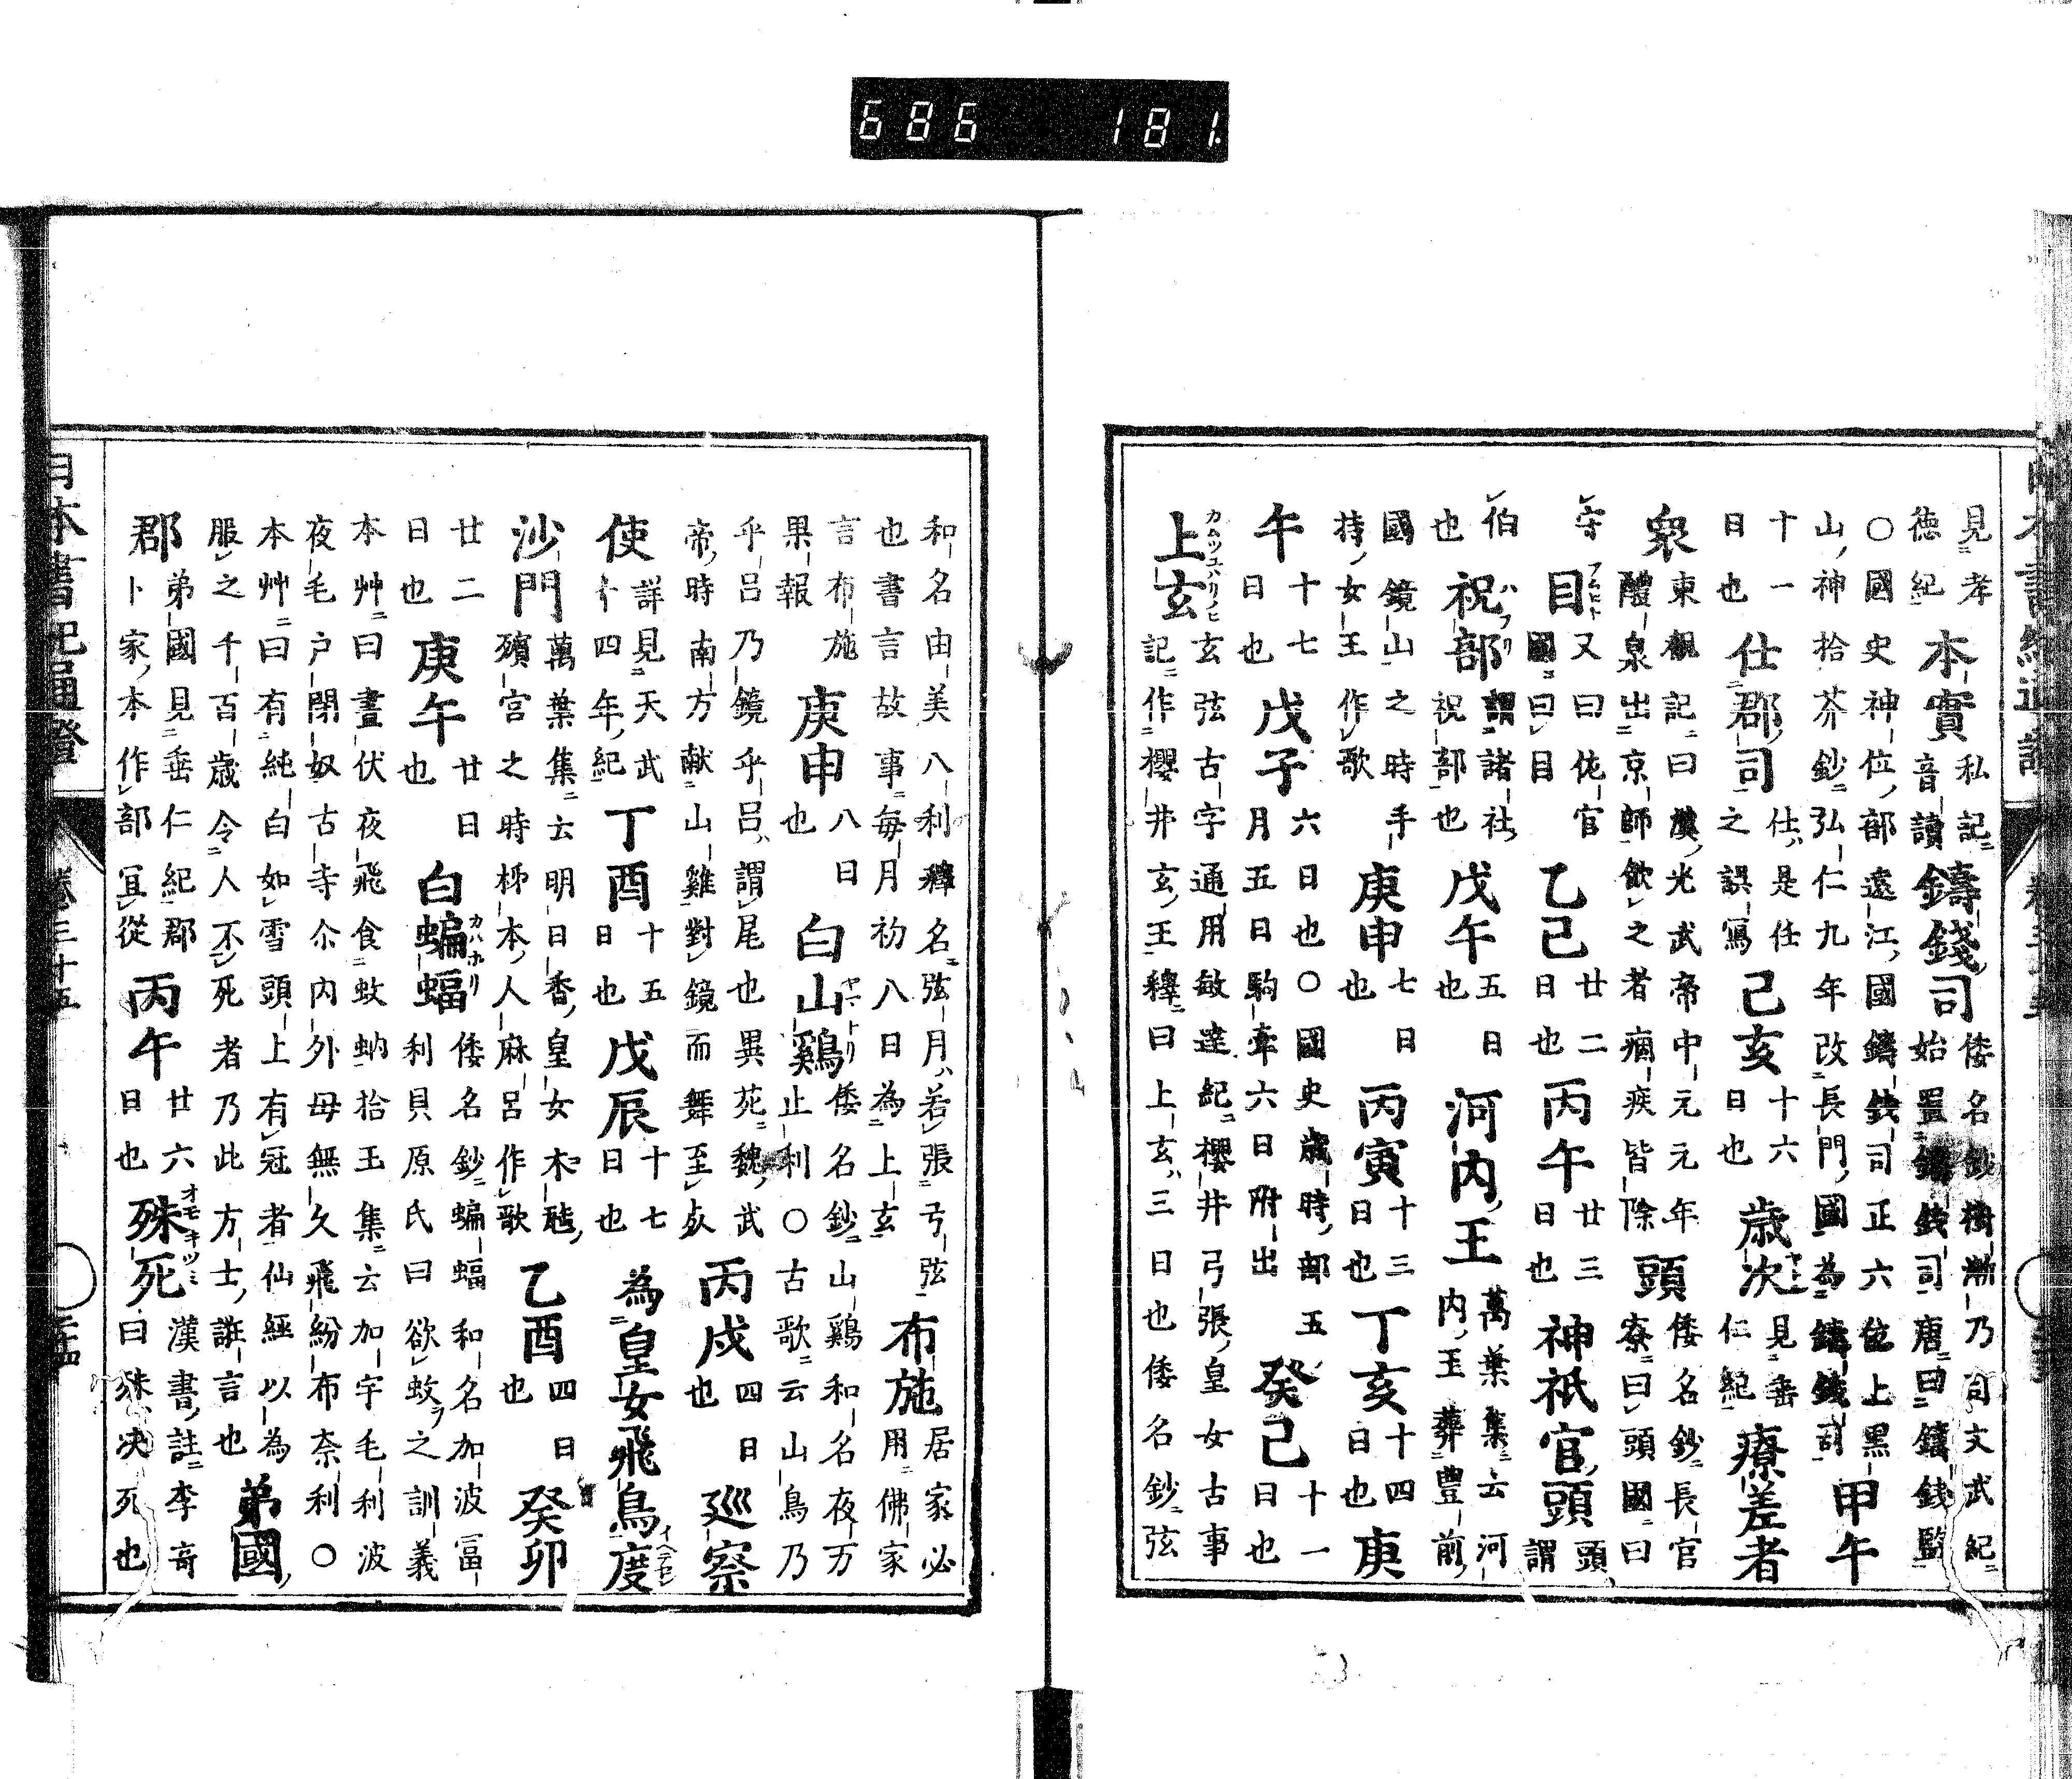 見孝德紀 本實 私記音讀 鑄錢司 倭名鈔樹漸乃司文武紀始置鑄錢司唐曰鑄錢監
○國史神位部遠江國鑄錢司正六位上黑山神拾芥鈔弘仁九年改長門國為鑄錢司 甲午
十一日也 仕郡司 仕是仕之誤寫 己亥 十六日也 歳次 見垂仁紀 療差者
衆 東觀記曰漢光武帝中元元年醴泉出京師飲之者痼疾皆除 頭 倭名鈔長官寮曰頭國曰
守 目 又曰佐官國曰目 乙巳 廿二日也 丙午 廿三日也 神祇官頭 頭謂
伯也 祝部 謂諸社祝部也 戊午 五日也 河内王 萬葉集云河内王葬豊前
國鏡山之時手持女王作歌 庚申 七日也 丙寅 十三日也 丁亥 十四日也 庚
午 十七日也 戊子 六日也○國史歳時部五月五日駒牽六日附出 癸巳 十一日也
上玄 玄弦古字通用敏達紀櫻井弓張皇女古事記作櫻井玄王釋曰上玄三日也倭名鈔弦
和名由美八利釋名弦月若張弓弦也書言故事每月初八日為上玄 布施 居家必用佛家
言布施果報 庚申 八日也 白山鷄 倭名鈔山鷄和名夜万止利○古歌云山鳥乃
乎呂乃鏡乎呂謂尾也異苑魏武帝時南方献山雞對鏡而舞至 丙戌 四日也 巡察
使 詳見天武十四年紀 丁酉 十五日也 戊辰 十七日也 為皇女飛鳥度
沙門 萬葉集云明日香皇女木殯宮之時柹本人麻呂作歌 乙酉 四日也 癸卯
廿二日也 庚午 廿日也 白蝙蝠 倭名鈔蝙蝠和名加波富利貝原氏曰欲蚊之訓義
本艸曰晝伏夜飛食蚊蚋拾玉集云加宇毛利波夜毛户閉奴古寺尒内外母無久飛紛布奈利○
本艸曰有純白如雪頭上有冠者仙經以為服之千百歳令人不死者乃此方士誑言也 弟國
郡 弟國見垂仁紀郡卜家本作部冝從 丙午 廿六日也 殊死 漢書註李奇曰殊決死也
日本書紀通證 卷三十五
686 181